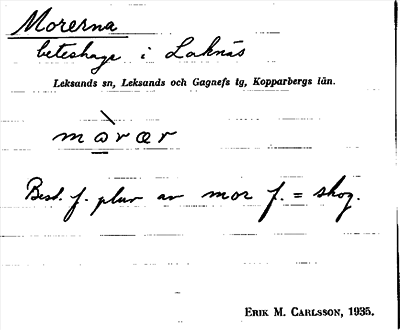 Morerna
beteshage i Laknäs
Leksands sn, Leksands och Gagnefs tg, Kopparbergs län.
mὼrær
Best. f. plur av mor f. = skog.
ERIK M. CARLSSON, 1935.